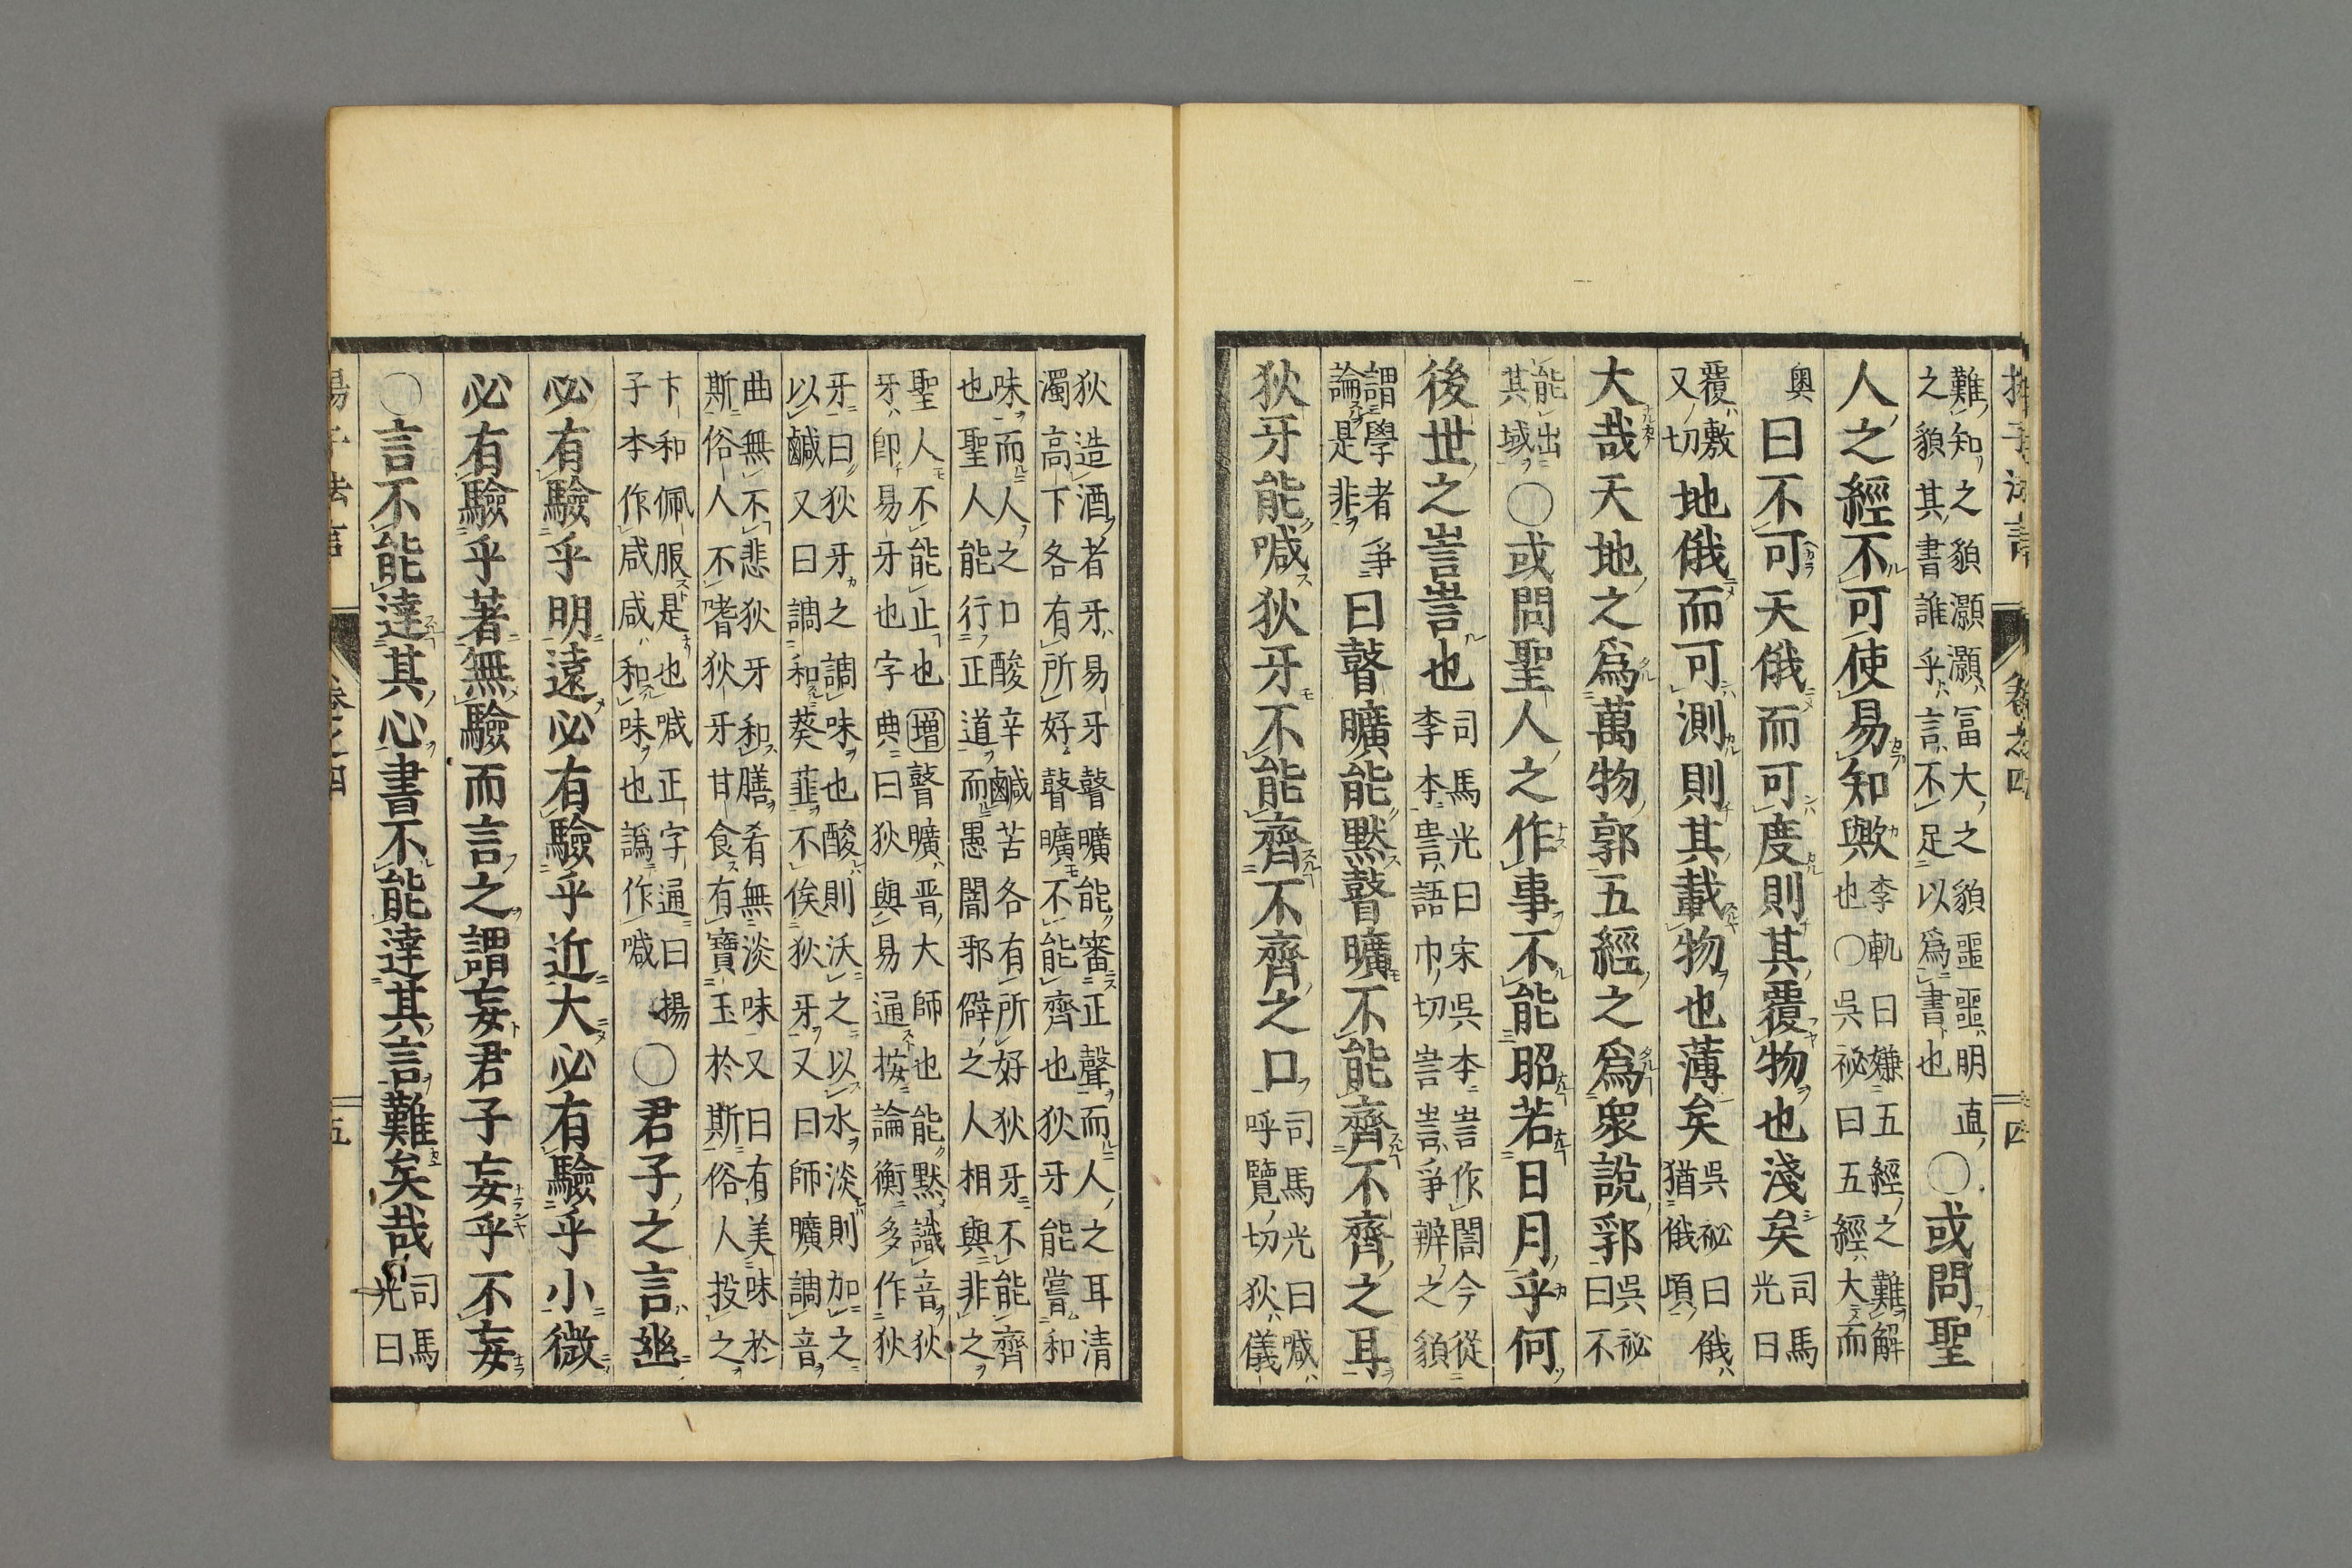 揚子法言 卷之四 四
難知之貌灝灝冨大之貌噩噩明直
之貌其書誰乎言不足以爲書也
○或問聖
人之經不可使易知歟
李軌曰嫌五經之難解
也○吳祕曰五經大而
奧
曰不可天俄而可度則其覆物也淺矣
司馬
光曰
覆敷
又切
地俄而可測則其載物也薄矣
吳祕曰俄
猶俄頃
大哉天地之爲萬物郭五經之爲衆說郛
吳祕
曰不
能出
其域
○或問聖人之作事不能昭若日月乎何
後世之訔訔也
司馬光曰宋吳本訔訔作誾今從
李本訔語巾切訔訔爭辨之貌
謂學者爭
論是非
曰瞽曠能默瞽曠不能齊不齊之耳
狄牙能喊狄牙不能齊不齊之口
司馬光曰喊
呼覽切狄儀
狄造酒者牙易牙瞽曠能審正聲而人之耳清
濁高下各有所好瞽曠不能齊也狄牙能嘗和
味而人之口酸辛鹹苦各有所好狄牙不能齊
也聖人能行正道而愚闇邪僻之人相與非之
聖人不能止也增瞽曠晋大師也能默識音狄
牙卽易牙也字典曰狄與易通按論衡多作狄
牙曰狄牙之調味也酸則沃之以水淡則加之
以鹹又曰調和葵韮不俟狄牙又曰師曠調音
曲無不悲狄牙和膳肴無淡味又曰有美味於
斯俗人不嗜狄牙甘食有寶玉於斯俗人投之
卞和佩服是也喊正字通曰揚
子李作咸咸和味也譌作喊
○君子之言幽
必有驗乎明遠必有驗乎近大必有驗乎小微
必有驗乎著無驗而言之謂妄君子妄乎不妄
○言不能達其心書不能達其言難矣哉
司馬
光曰
揚子法言 卷之四 五